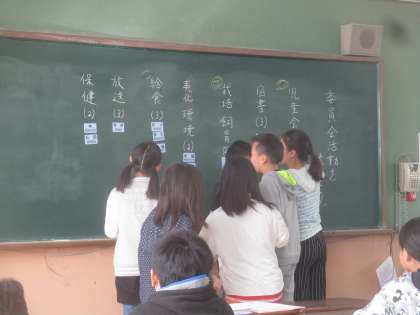 委員会活動
児童会
図書(3)
栽培飼育
美化環境(2)
給食(3)
放送(3)
保健(2)